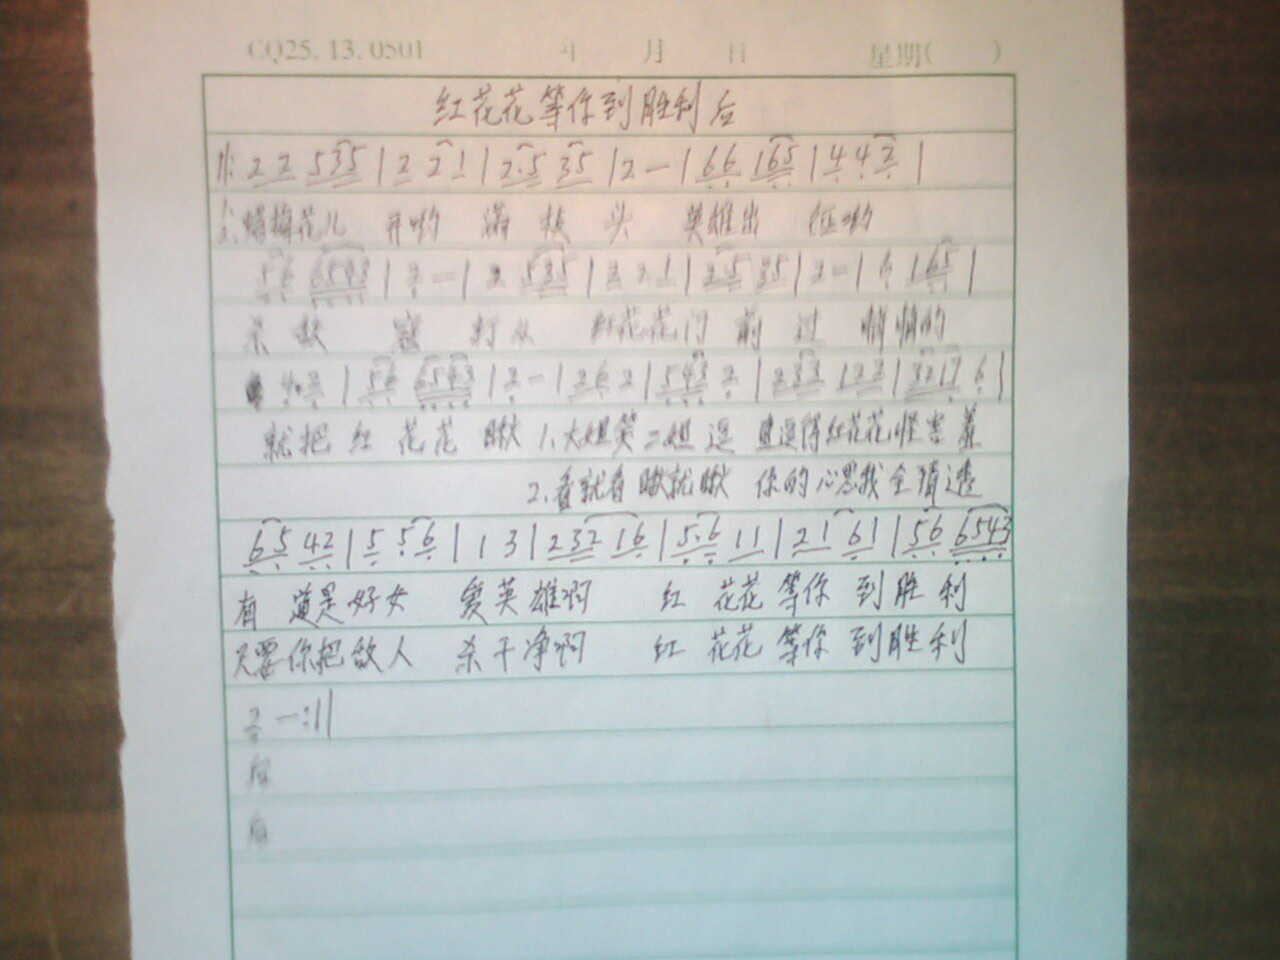 CQ25.13.0501 年 月 日 星期( )
红花花等你到胜利后
‖: 2 2 5 3 5 | 2 2 1 | 2·5 3 5 | 2 — | 6 6 1 6 5 | 4 4 2 |
腊梅花儿 开哟 满枝头 英雄出征哟
5 6 6 5 4 3 | 2 — | 2 5 3 5 | 2 2 1 | 2·5 3 5 | 2 — | 6 1 6 5 |
杀敌寇 打从 红花花门前过 悄悄的
4·2 | 5 6 6 5 4 3 | 2 — | 2 6 2 | 5 4 3 2 | 2 3 3 1 2 2 | 3 2 1 7 6 |
就把红花花瞅 1.大姐笑二姐逗 逗得红花花怪害羞
2.看就看瞅就瞅 你的心思我全猜透
6 5 4 2 | 5 5 6 | 1 3 | 2 3 2 1 6 | 5·6 1 1 | 2 1 6 1 | 5 6 6 5 4 3
有道是好女 爱英雄啊 红花花等你到胜利
只要你把敌人 杀干净啊 红花花等你到胜利
2 — :‖
后
后